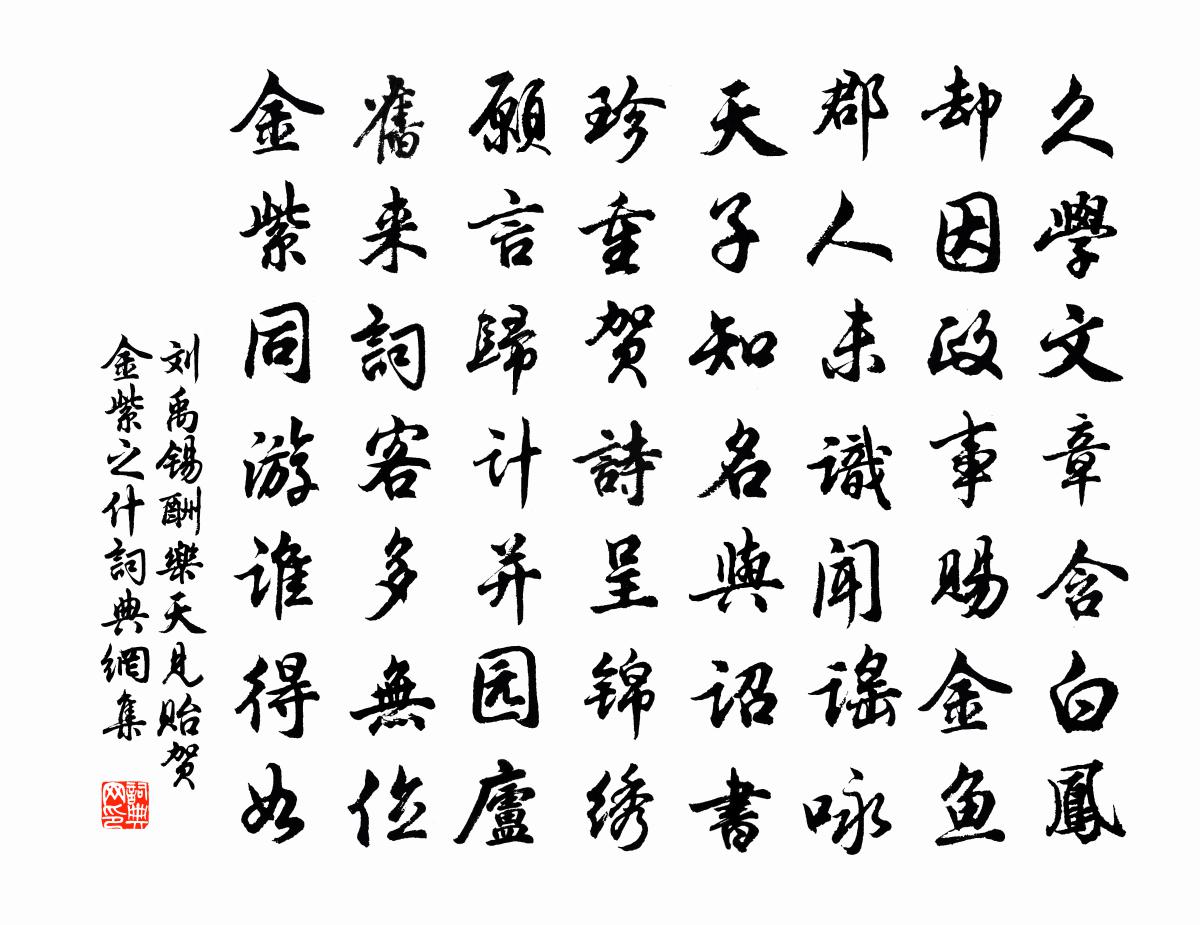 久學文章含白鳳
却因政事賜金魚
郡人未識聞謠咏
天子知名與詔書
珍重贺詩呈锦绣
願言歸计并园廬
舊来詞客多無位
金紫同游誰得如
刘禹锡酬樂天見贻贺
金紫之什詞典網集
詞典
网印